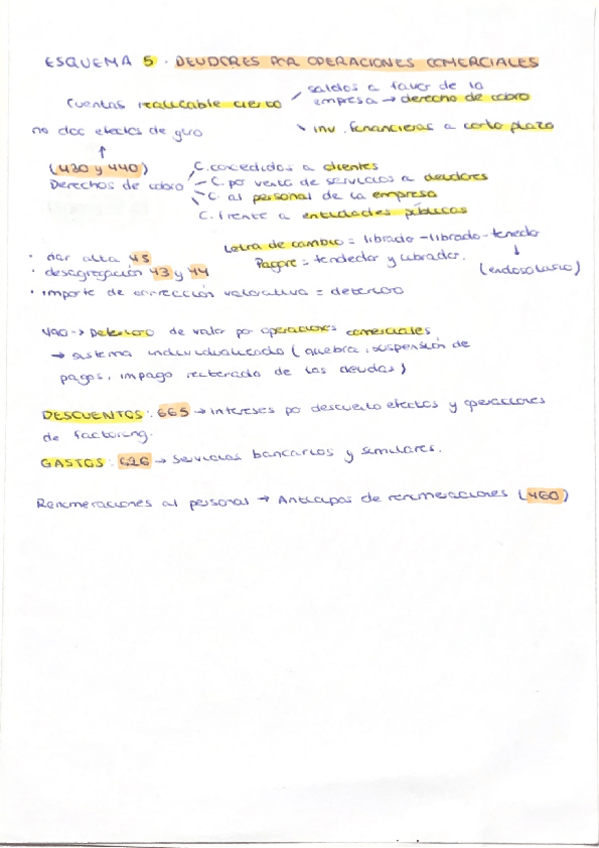 ESQUEMA 5 · DEUDORES POR OPERACIONES COMERCIALES
saldos a favor de la
Cuentas realizable cierto empresa → derecho de cobro
no doc efectos de giro inv. financieras a corto plazo
↑
(430 y 440) C. concedidos a clientes
Derechos de cobro C. por venta de servicios a deudores
C. al personal de la empresa
C. frente a entidades públicas
Letra de cambio = librado - librado - tenedor
· dar alta 45
Pagare = tendedor y librador. ↓
· desagregación 43 y 44 (endosatario)
· importe de corrección valorativa = deterioro
490 → Deterioro de valor por operaciones comerciales
→ sistema individualizado (quiebra, suspensión de
pagos, impago reiterado de las deudas)
DESCUENTOS: 665 → intereses por descuento efectos y operaciones
de factoring.
GASTOS: 626 → servicios bancarios y similares.
Renumeraciones al personal → Anticipos de renumeraciones (460)